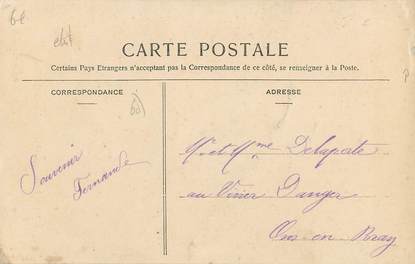 6€
60
CARTE POSTALE
Certains Pays Etrangers n'acceptant pas la Correspondance de ce côté, se renseigner à la Poste.
CORRESPONDANCE
ADRESSE
Souvenir
Fernande
Mr et Mme Delaporte
au Vivier Danger
Ons en Bray